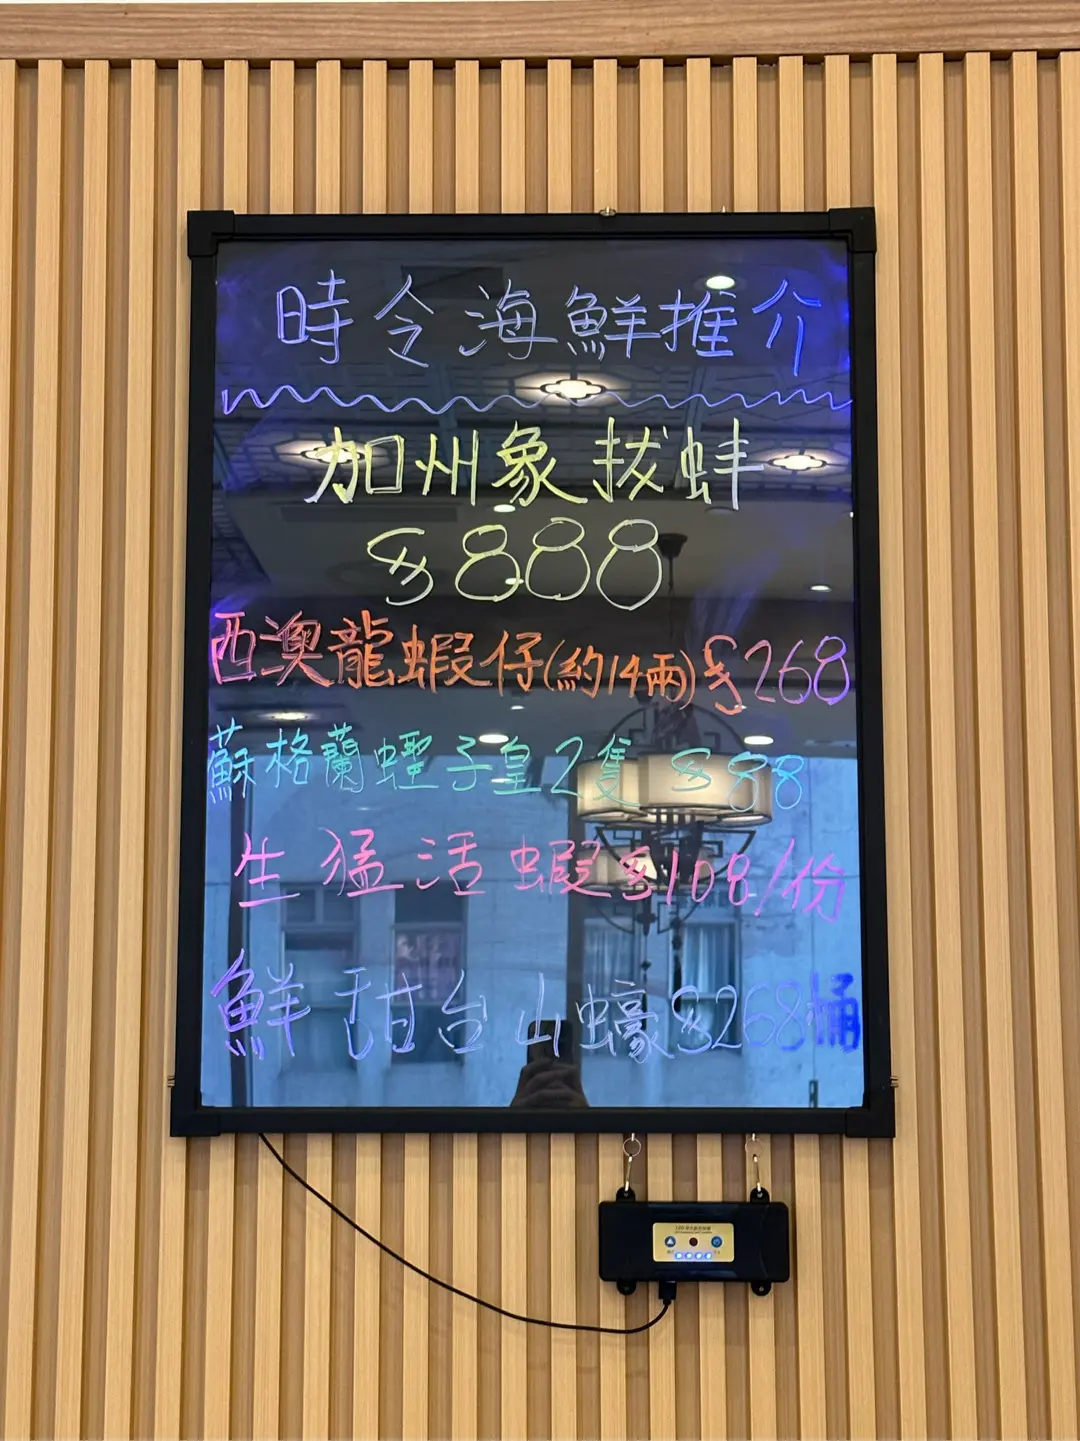 時令海鮮推介
加州象拔蚌
$888
西澳龍蝦仔(約14兩)$268
蘇格蘭蟶子皇2隻 $88
生猛活蝦$108/份
鮮甜台山蠔$268桶